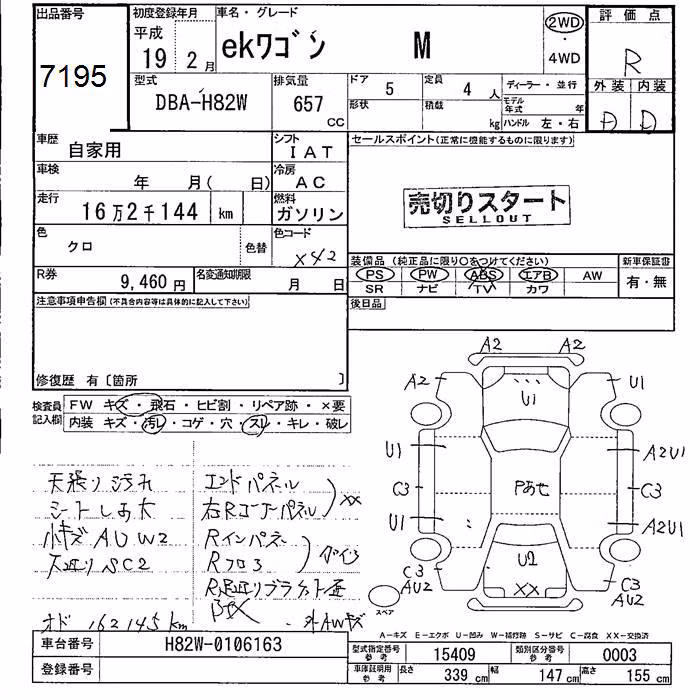 出品番号
7195
初度登録年月
平成
19 2月
車名・グレード
ekワゴン M
2WD
・
4WD
評価点
R
外装 内装
D
型式
DBA-H82W
排気量
657
CC
ドア
5
定員
4人
形状
積載
kg
ディーラー・並行
モデル年式 年
ハンドル 左・右
車歴
自家用
シフト
IAT
車検
年 月( 日)
冷房
AC
走行
16万2千144 km
燃料
ガソリン
色
クロ
色替
色コード
X42
R券
9,460円
名変通知期限
月 日
セールスポイント(正常に機能するものに限ります)
売切りスタート
SELLOUT
装備品(純正品に限り○をつけてください)
PS PW ABS エアB AW
SR ナビ TV カワ
新車保証書
有・無
後日品
注意事項申告欄(不具合内容等は具体的に記入して下さい)
修復歴 有〔箇所 〕
検査員記入欄
FW キズ・飛石・ヒビ割・リペア跡・×要
内装 キズ・汚レ・コゲ・穴・スレ・キレ・破レ
天張り汚れ
エンドパネル
右Rコーナーパネル
XX
小キズ AU W2
Rインパネ
Rフロア
SC2
オド 162145km
外AWキズ
A2 A2
A2 U1 U1
U1 A2U1
C3 Pあせ C3
U1 A2U1
U2
C3 C3
AU2 XX AU2
スペア
A-キズ E-エクボ U-凹み W-補修跡 S-サビ C-腐食 XX-交換済
車台番号
H82W-0106163
登録番号
型式指定番号
参考
15409
類別区分番号
参考
0003
車庫証明用
参考
長さ
339 cm
幅
147 cm
高さ
155 cm